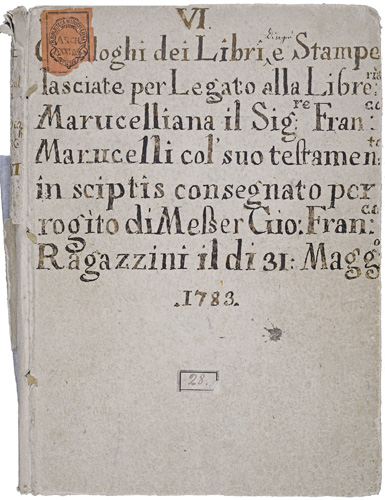 VI.
Cataloghi dei Libri, e Stampe
lasciate per Legato alla Libreria
Marucelliana il Sig.re Fran.co
Marucelli col' suo testamento
in sciptis consegnato per
rogito di Meßer Gio: Fran.co
Ragazzini il di 31: Magg.o
.1783.
28.